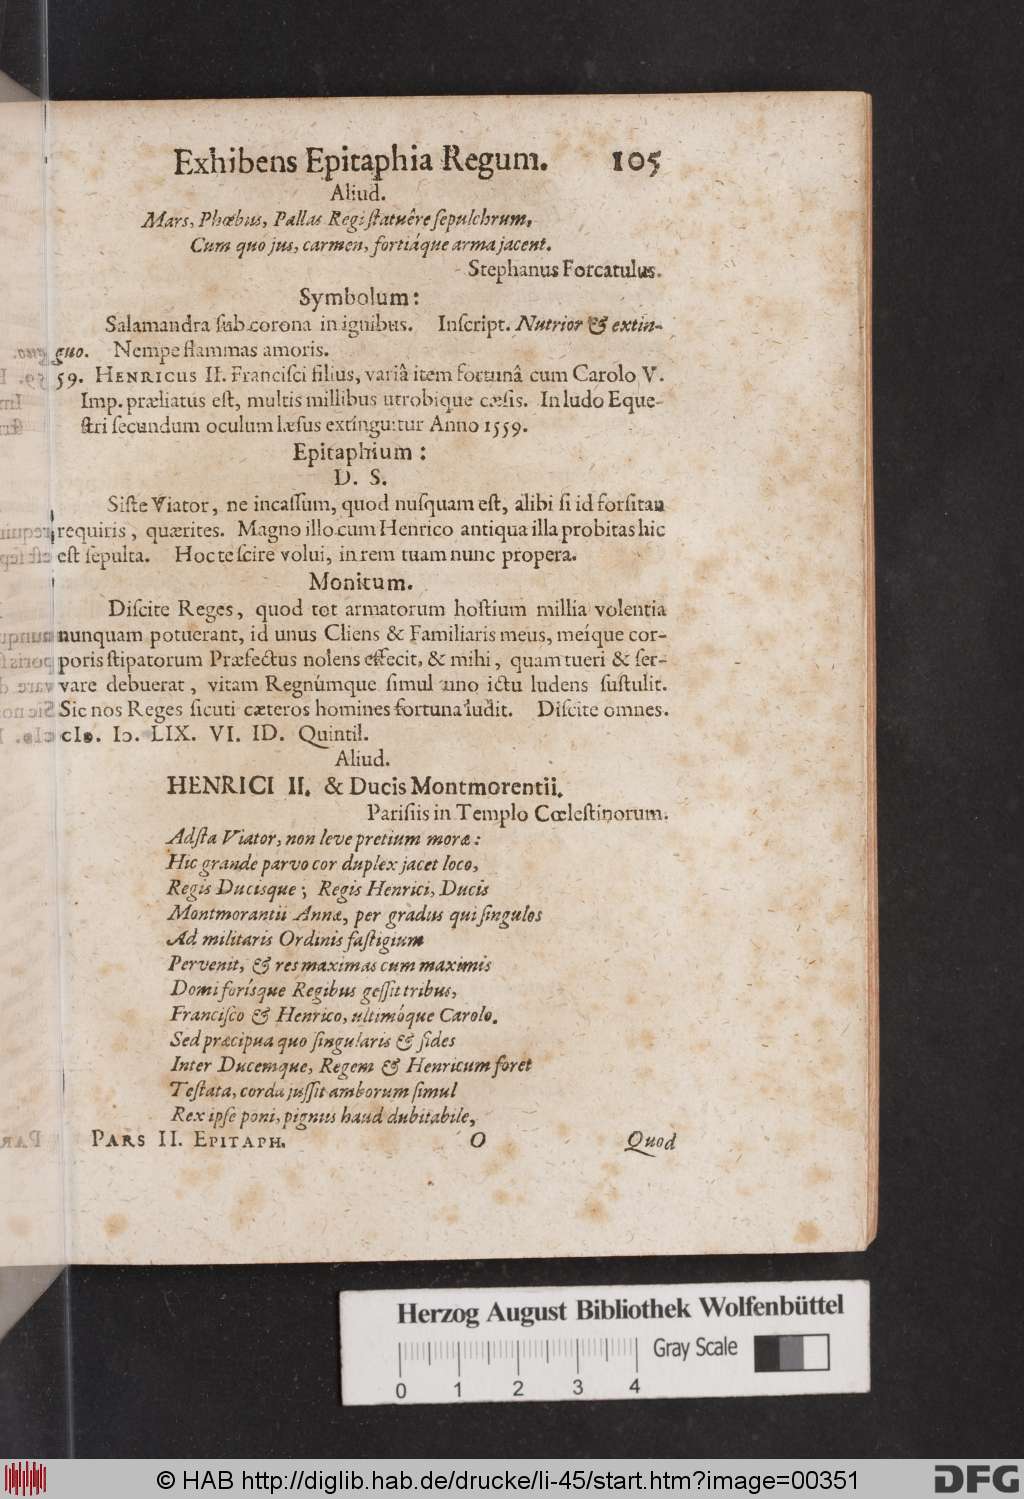 Exhibens Epitaphia Regum. 105
Aliud.
Mars, Phœbus, Pallas Regi ſtatuêre ſepulchrum,
Cum quo jus, carmen, fortiáque arma jacent.
Stephanus Forcatulus.
Symbolum:
Salamandra ſub corona in ignibus. Inſcript. Nutrior & extin-
guo. Nempe flammas amoris.
59. HENRICUS II. Franciſci filius, variâ item fortunâ cum Carolo V.
Imp. præliatus eſt, multis millibus utrobique cæſis. In ludo Eque-
ſtri ſecundum oculum læſus extinguitur Anno 1559.
Epitaphium:
D. S.
Siſte Viator, ne incaſſum, quod nuſquam eſt, alibi ſi id forſitan
requiris, quærites. Magno illo cum Henrico antiqua illa probitas hic
eſt ſepulta. Hoc te ſcire volui, in rem tuam nunc propera.
Monitum.
Diſcite Reges, quod tot armatorum hoſtium millia volentia
nunquam potuerant, id unus Cliens & Familiaris meus, meíque cor-
poris ſtipatorum Præfectus nolens effecit, & mihi, quam tueri & ſer-
vare debuerat, vitam Regnúmque ſimul uno ictu ludens ſuſtulit.
Sic nos Reges ſicuti cæteros homines fortuna ludit. Diſcite omnes.
cIↄ. Iↄ. LIX. VI. ID. Quintil.
Aliud.
HENRICI II. & Ducis Montmorentii.
Pariſiis in Templo Cœleſtinorum.
Adſta Viator, non leve pretium moræ:
Hic grande parvo cor duplex jacet loco,
Regis Ducisque; Regis Henrici, Ducis
Montmorantii Annæ, per gradus qui ſingulos
Ad militaris Ordinis faſtigium
Pervenit, & res maximas cum maximis
Domi forísque Regibus geſſit tribus,
Franciſco & Henrico, ultimóque Carolo.
Sed præcipua quo ſingularis & fides
Inter Ducemque, Regem & Henricum foret
Teſtata, corda juſſit amborum ſimul
Rex ipſe poni, pignus haud dubitabile,
PARS II. EPITAPH. O Quod
Herzog August Bibliothek Wolfenbüttel
Gray Scale
0 1 2 3 4
© HAB http://diglib.hab.de/drucke/li-45/start.htm?image=00351
DFG